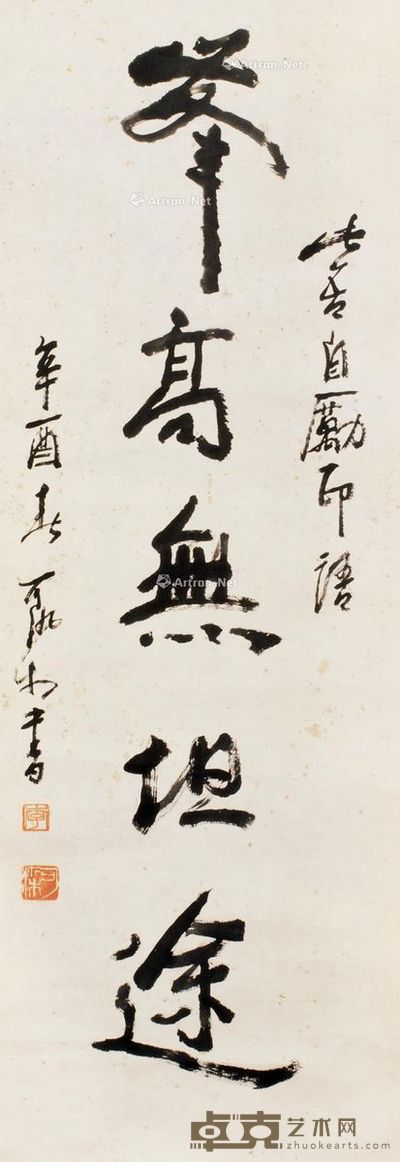 此吾自勵印語
峯高無坦途
辛酉春可染書
Artron.Net
Artron.Net
Artron.Net
卓克艺术网
zhuokearts.com